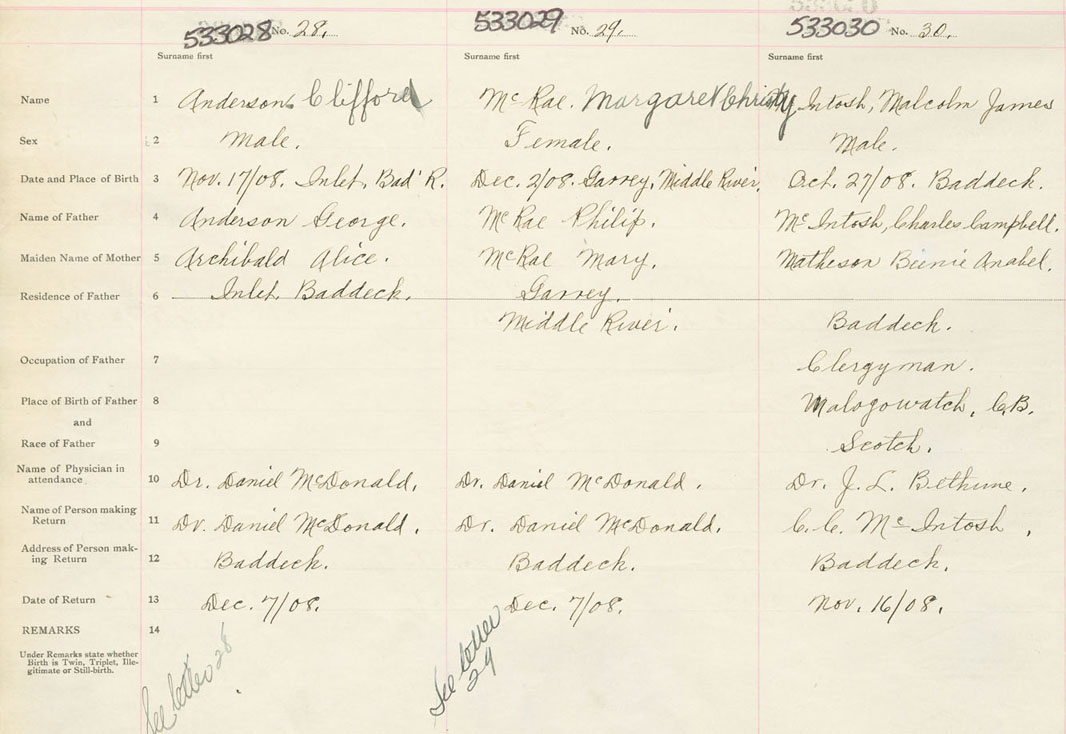 533028 No. 28. 533029 No. 29. 533030 No. 30.
Surname first Surname first Surname first
Name 1 Anderson, Clifford McRae. Margaret Christy Intosh, Malcolm James
Sex 2 Male. Female. Male.
Date and Place of Birth 3 Nov. 17/08. Inlet, Bad'R. Dec. 2/08. Garrey, Middle River. Oct. 27/08. Baddeck.
Name of Father 4 Anderson George. McRae Philip. McIntosh, Charles Campbell.
Maiden Name of Mother 5 Archibald Alice. McRae Mary. Matheson Bienie Anabel.
Residence of Father 6 Inlet, Baddeck. Garrey.
Middle River. Baddeck.
Occupation of Father 7 Clergyman.
Place of Birth of Father 8 Malogowatch, C.B.
and
Race of Father 9 Scotch.
Name of Physician in
attendance 10 Dr. Daniel McDonald. Dr. Daniel McDonald. Dr. J. L. Bethune.
Name of Person making
Return 11 Dr. Daniel McDonald. Dr. Daniel McDonald. C. C. McIntosh.
Address of Person mak-
ing Return 12 Baddeck. Baddeck. Baddeck.
Date of Return 13 Dec. 7/08. Dec. 7/08. Nov. 16/08.
REMARKS 14
Under Remarks state whether
Birth is Twin, Triplet, Ille-
gitimate or Still-birth.
See letter 28
See letter
29